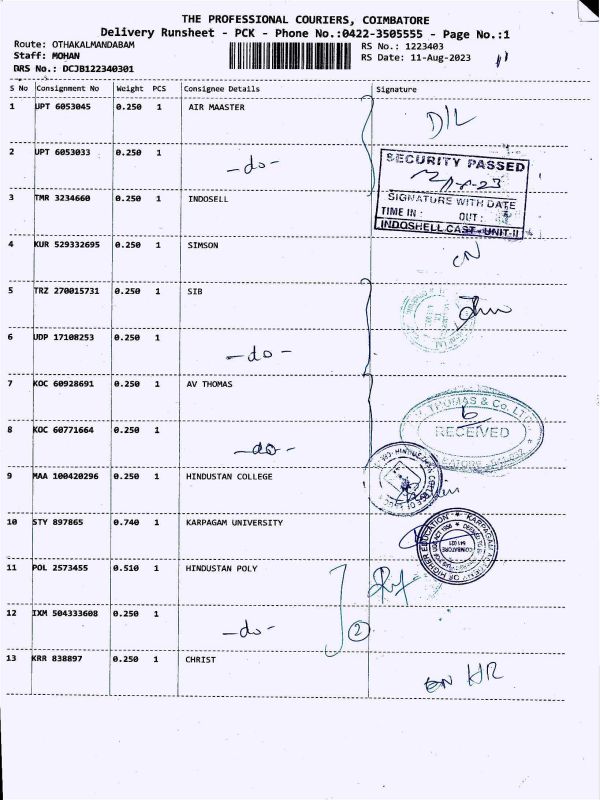 THE PROFESSIONAL COURIERS, COIMBATORE
Delivery Runsheet - PCK - Phone No.:0422-3505555 - Page No.:1
Route: OTHAKALMANDABAM
RS No.: 1223403
Staff: MOHAN
RS Date: 11-Aug-2023
DRS No.: DCJB122340301
S No Consignment No Weight PCS Consignee Details Signature
1 UPT 6053045 0.250 1 AIR MAASTER
D/L
2 UPT 6053033 0.250 1
-do-
SECURITY PASSED
3 TMR 3234660 0.250 1 INDOSELL
SIGNATURE WITH DATE
TIME IN : OUT :
INDOSHELL CAST - UNIT-II
4 KUR 529332695 0.250 1 SIMSON
5 TRZ 270015731 0.250 1 SIB
6 UDP 17108253 0.250 1
-do-
7 KOC 60928691 0.250 1 AV THOMAS
THOMAS & Co. LTD.
8 KOC 60771664 0.250 1
RECEIVED
-do-
9 MAA 100420296 0.250 1 HINDUSTAN COLLEGE
10 STY 897865 0.740 1 KARPAGAM UNIVERSITY
KARPAGAM ACADEMY OF HIGHER EDUCATION
COIMBATORE
641 021
11 POL 2573455 0.510 1 HINDUSTAN POLY
12 IXM 504333608 0.250 1
-do- 2
13 KRR 838897 0.250 1 CHRIST